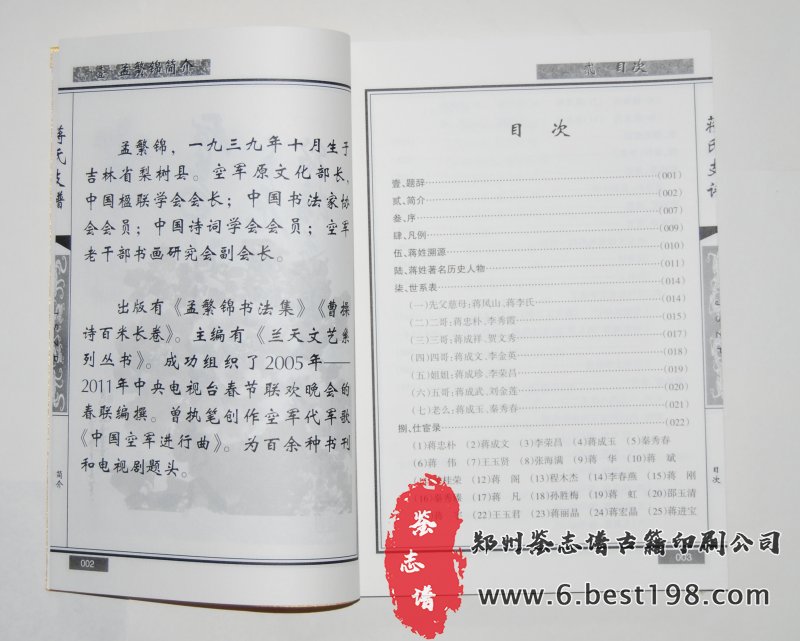 孟繁锦简介
蒋氏支谱
孟繁锦，一九三九年十月生于
吉林省梨树县。空军原文化部长，
中国楹联学会会长；中国书法家协
会会员；中国诗词学会会员；空军
老干部书画研究会副会长。
出版有《孟繁锦书法集》《曹操
诗百米长卷》。主编有《兰天文艺系
列丛书》。成功组织了2005年——
2011年中央电视台春节联欢晚会的
春联编撰。曾执笔创作空军代军歌
《中国空军进行曲》。为百余种书刊
和电视剧题头。
简介
002
目次
蒋氏支谱
目 次
壹、题辞 (001)
贰、简介 (002)
叁、序 (007)
肆、凡例 (009)
伍、蒋姓溯源 (010)
陆、蒋姓著名历史人物 (011)
柒、世系表 (014)
(一)先父慈母：蒋凤山、蒋李氏 (014)
(二)二哥：蒋忠朴、李秀霞 (015)
(三)三哥：蒋成祥、贺文秀 (017)
(四)四哥：蒋成文、李金英 (018)
(五)姐姐：蒋成珍、李荣昌 (019)
(六)五哥：蒋成武、刘金莲 (020)
(七)老么：蒋成玉、秦秀春 (021)
捌、仕宦录 (022)
(1)蒋忠朴 (2)蒋成文 (3)李荣昌 (4)蒋成玉 (5)秦秀春
(6)蒋 伟 (7)王玉贤 (8)张海满 (9)蒋 华 (10)蒋 斌
桂荣 (12)蒋 阁 (13)程木杰 (14)李春燕 (15)蒋 刚
(16)秦 (17)蒋 凡 (18)孙胜梅 (19)蒋 虹 (20)邵玉清
(22)王玉君 (23)蒋丽晶 (24)蒋宏晶 (25)蒋进宝
目次
003
鉴志谱
郑州鉴志谱古籍印刷公司
www.6.best198.com